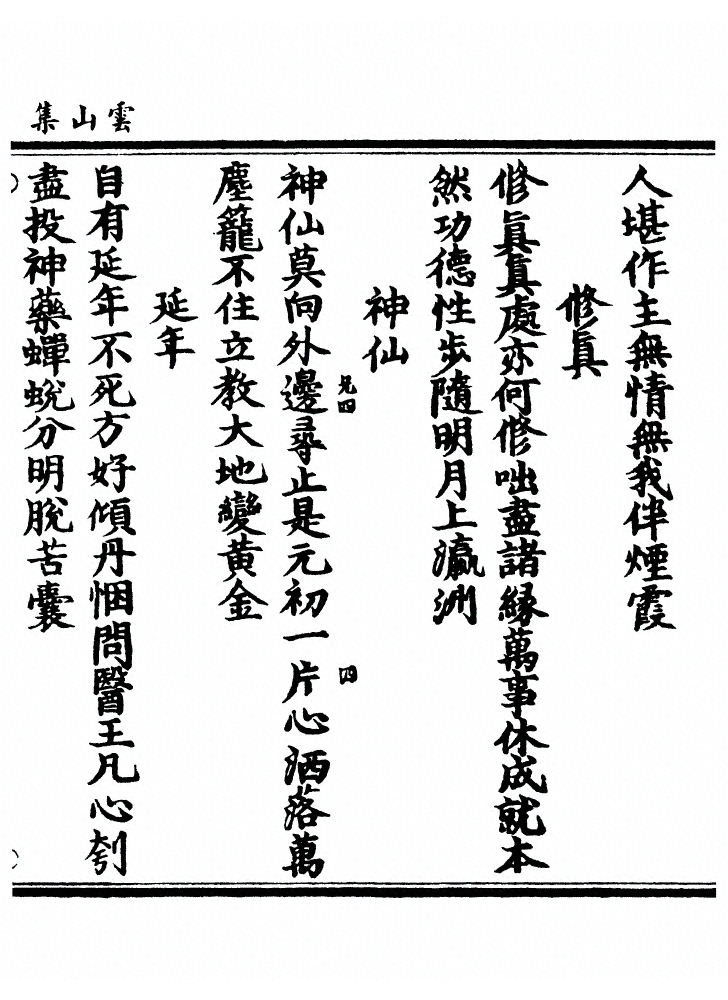 雲山集
人堪作主無情無我伴煙霞
修眞
修眞眞處亦何修咄盡諸緣萬事休成就本
然功德性步隨明月上瀛洲
神仙
兄四
四
神仙莫向外邊尋止是元初一片心洒落萬
塵籠不住立教大地變黃金
延年
自有延年不死方好傾丹悃問醫王凡心刳
盡投神藥蟬蛻分明脫苦囊